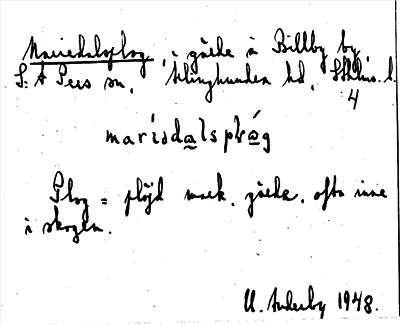 Mariedalsplog, i gärde å Billby by,
S:t Pers sn, Ærlinghundra hd, Sthlms l.
4
marisdalsplòg
Plog = plöjd mark, gärde, ofta inne
i skogen.
U. Anderby 1948.